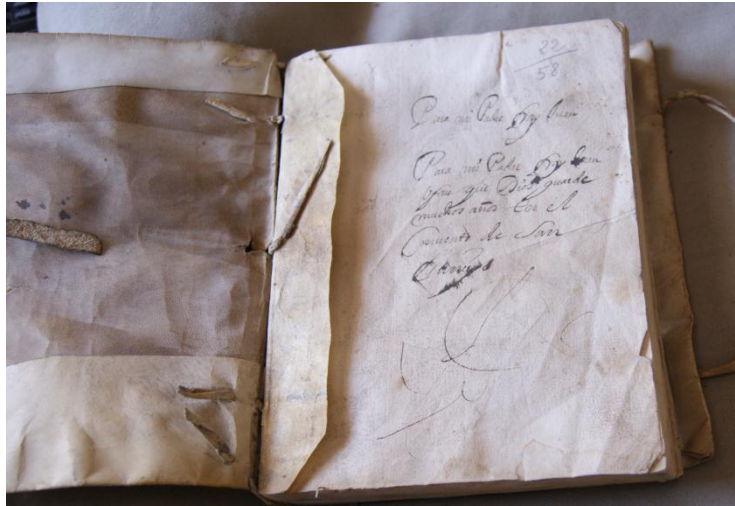 22
58
Para mi Padre Fry Juan
Para mi Padre Fry Juan
que Dios guarde
muchos años En el
Convento de San